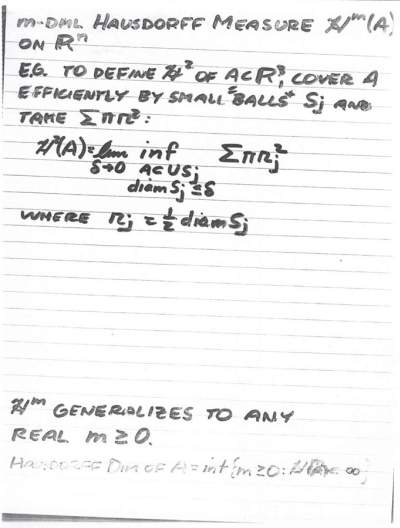 m-DML HAUSDORFF MEASURE ℋᵐ(A)
ON ℝⁿ
E.G. TO DEFINE ℋ² OF A⊂ℝ³, COVER A
EFFICIENTLY BY SMALL "BALLS" Sⱼ AND
TAKE Σπr²:
ℋ²(A) = lim inf Σπrⱼ²
δ→0 A⊂∪Sⱼ
diam Sⱼ ≤ δ
WHERE rⱼ = ½ diam Sⱼ
ℋᵐ GENERALIZES TO ANY
REAL m ≥ 0.
HAUSDORFF DIM OF A = inf {m≥0: ℋᵐ(A) < ∞}